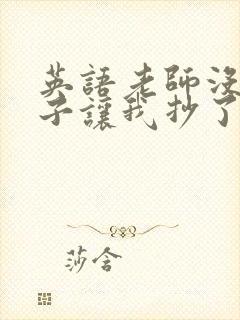 英語老師沒
子讓我抄了
莎含